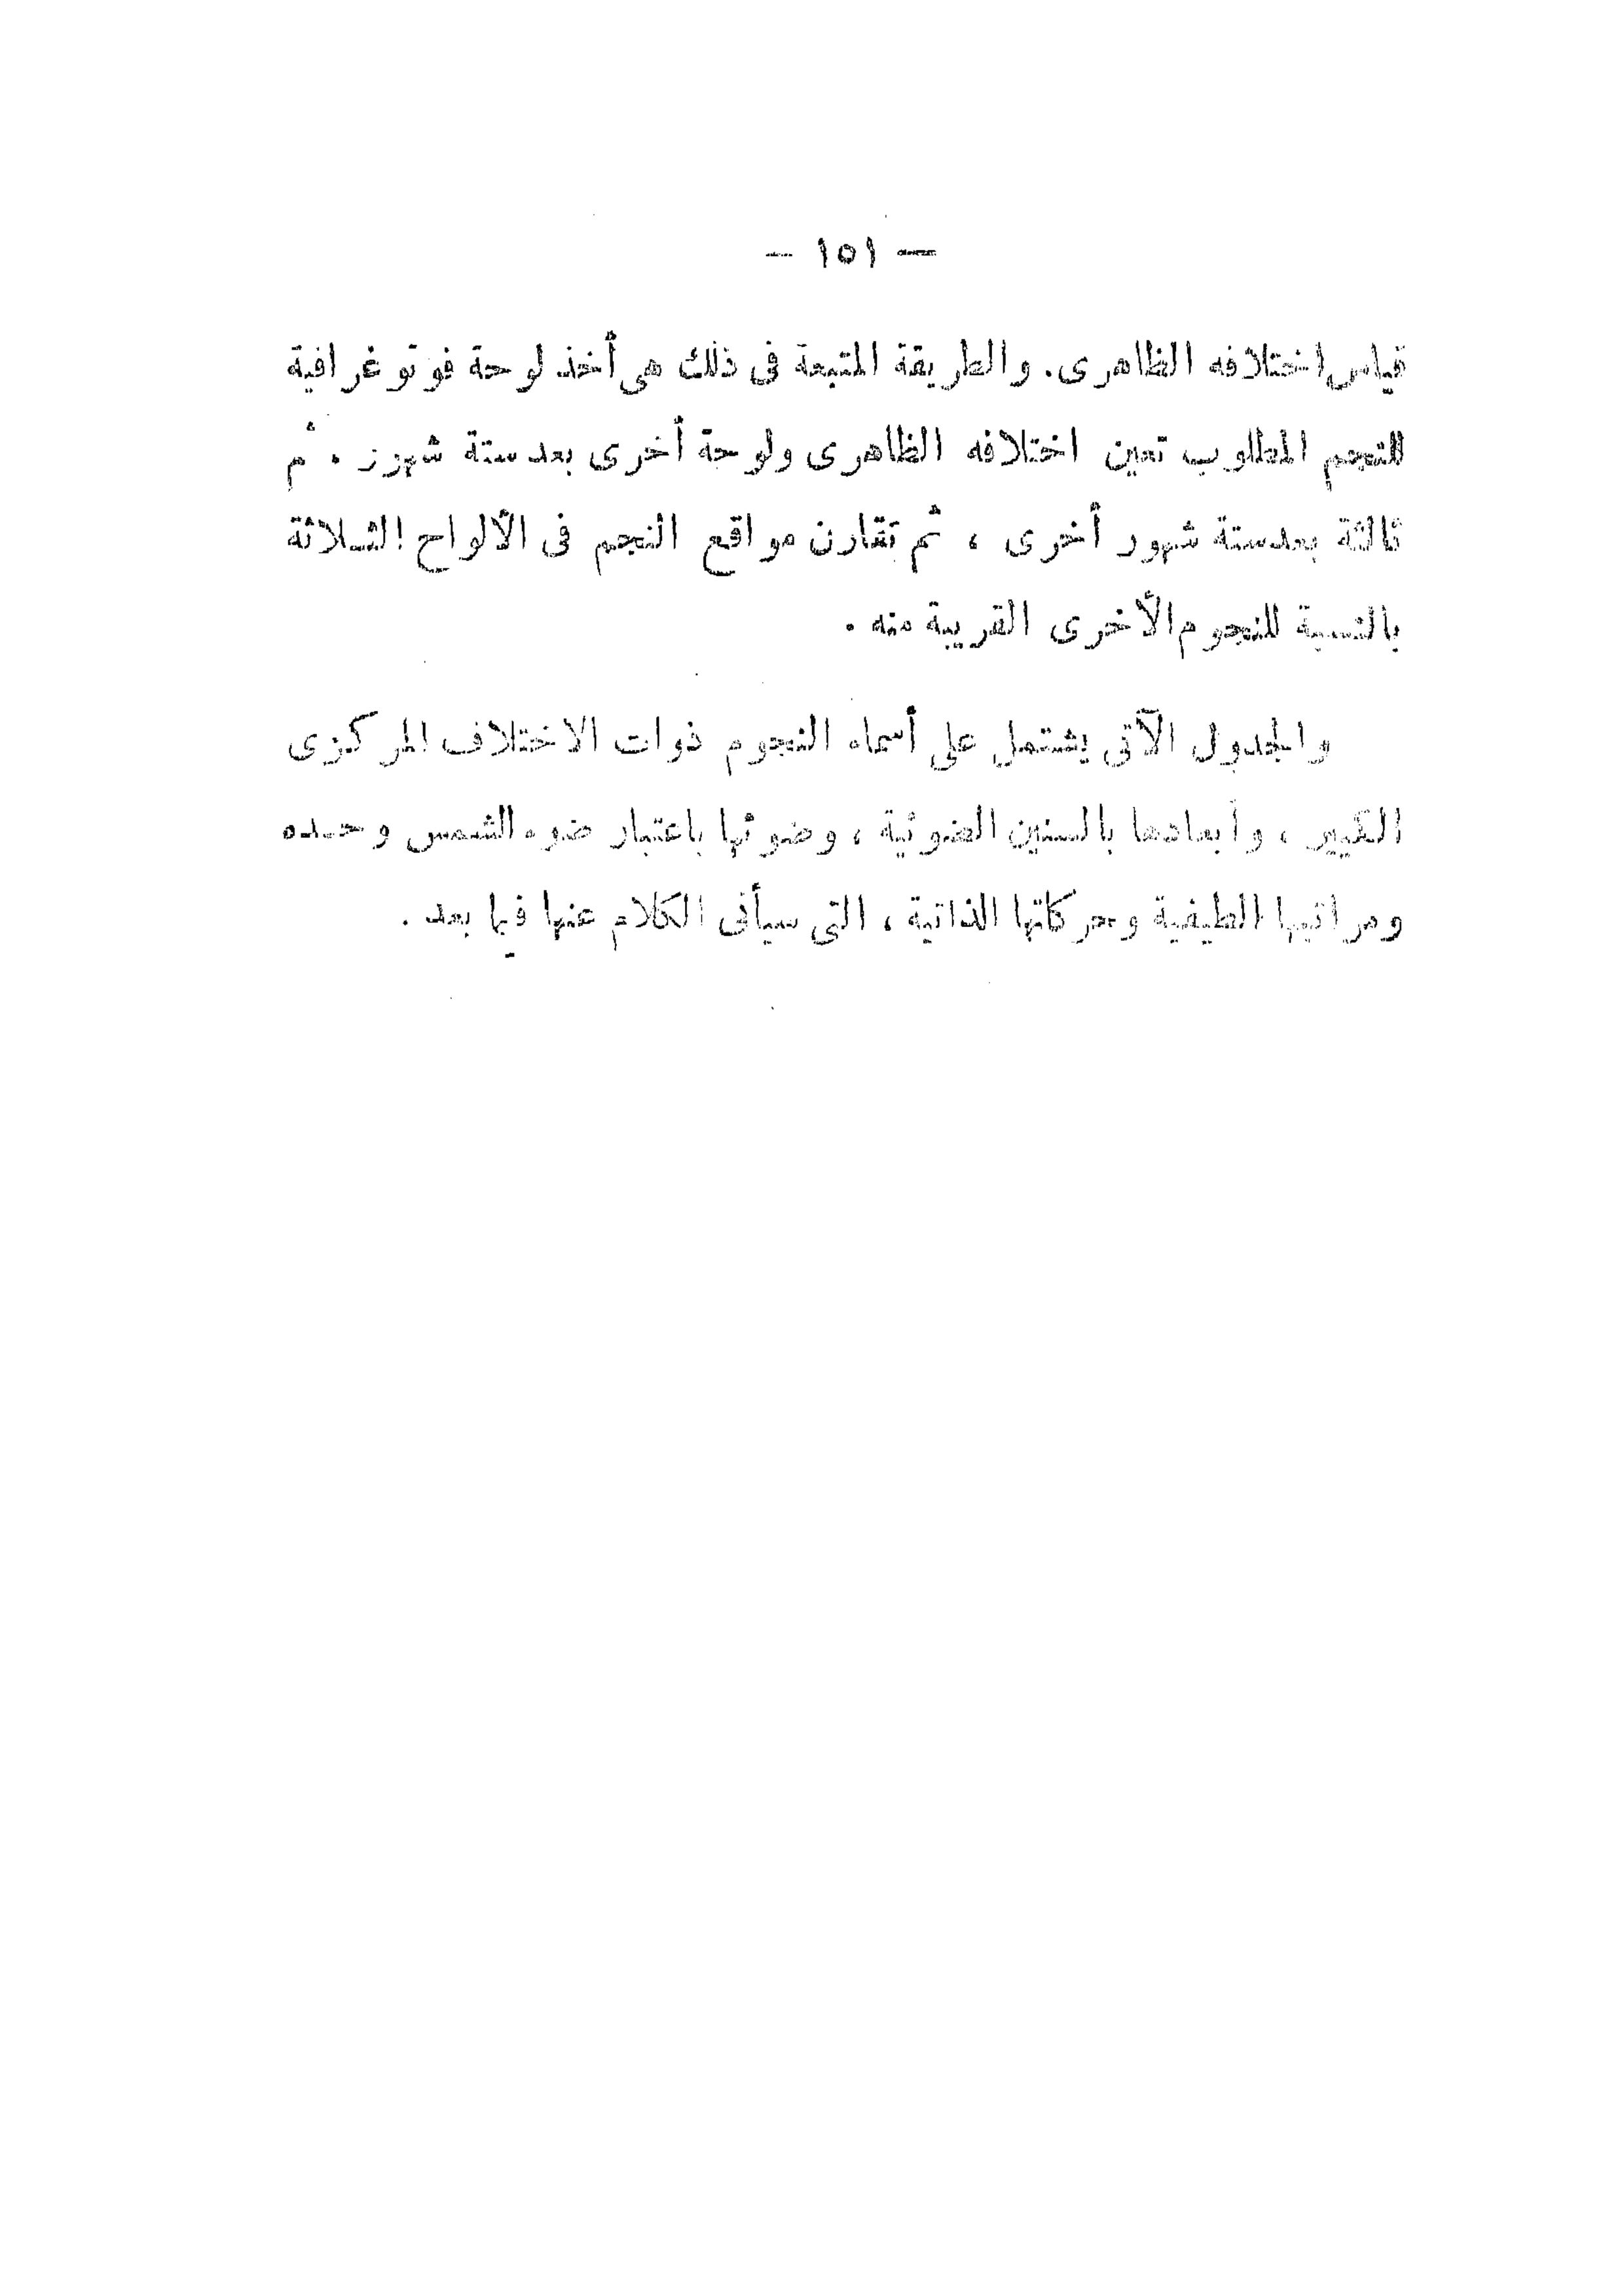 — ١٥١ —
قياس اختلافه الظاهرى. والطريقة المتبعة فى ذلك هى أخذ لوحة فوتوغرافية
للنجم المطلوب تعين اختلافه الظاهرى ولوحة أخرى بعد ستة شهور . ثم
ثالثة بعد ستة شهور أخرى ، ثم تقارن مواقع النجم فى الألواح الثلاثة
بالنسبة للنجوم الأخرى القريبة منه .
والجدول الآتى يشتمل على أسماء النجوم ذوات الاختلاف المركزى
الكبير ، وأبعادها بالسنين الضوئية ، وضوئها باعتبار ضوء الشمس وحده
ومراتبها الطيفية وحركاتها الذاتية ، التى سيأتى الكلام عنها فيما بعد .